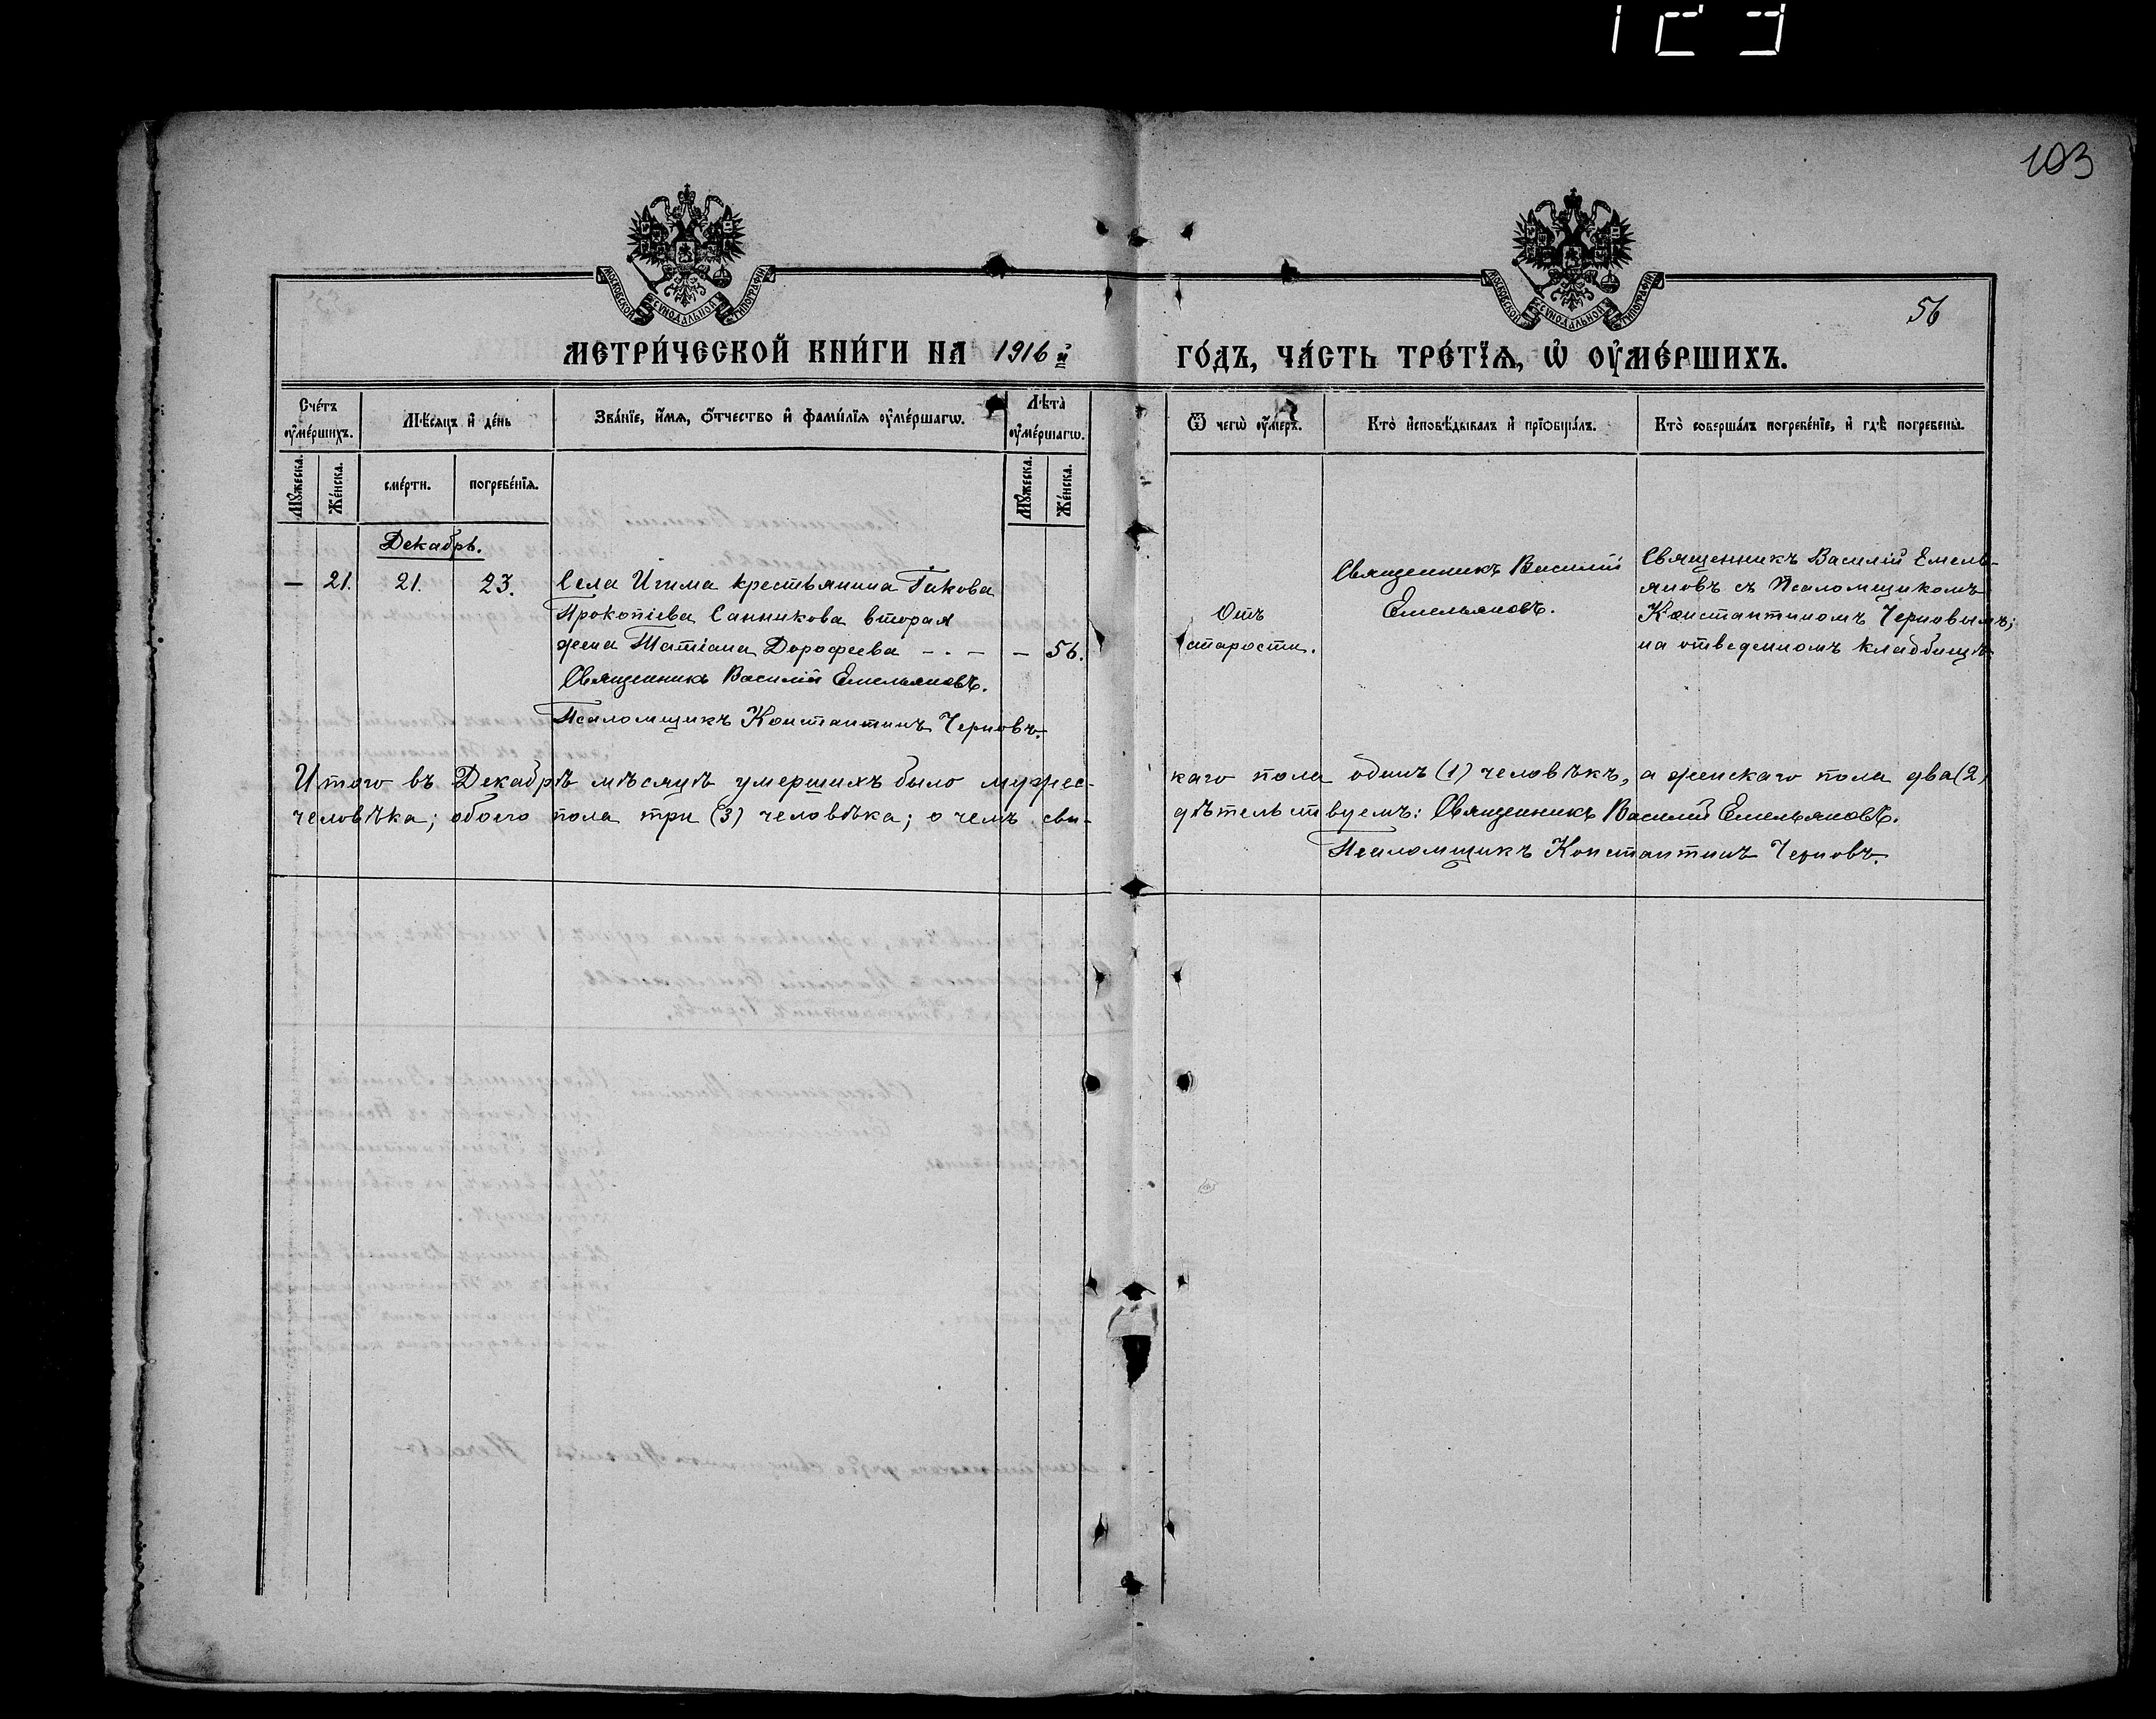 103
МОСКОВСКОЙ СѴНОДАЛЬНОЙ ТИПОГРАФІИ
МОСКОВСКОЙ СѴНОДАЛЬНОЙ ТИПОГРАФІИ
56
МЕТРИ́ЧЕСКОЙ КНИ́ГИ НА 1916й ГО́ДЪ, ЧА́СТЬ ТРЕ́ТЇѦ, Ѡ҆ ОУ҆МЕ́РШИХЪ.
Сче́тъ оу҆ме́ршихъ.
Мѣ́сяцъ и҆ де́нь
Зва́нїе, и҆́мя, ѻ҆́тчество и҆ фами́лїя оу҆ме́ршагѡ.
Лѣ́та оу҆ме́ршагѡ.
Ѿ чегѡ̀ оу҆́меръ.
Кто̀ и҆сповѣ́дывалъ и҆ прїѡбща́лъ.
Кто̀ соверша́лъ погребе́нїе, и҆ гдѣ̀ погребены̀.
Мꙋ́жеска.
Же́нска.
сме́рти.
погребе́нїя.
Мꙋ́жеска.
Же́нска.
Декабрь.
— 21. 21. 23. Села Игима крестьянина Іакова
Прокопіева Санникова вторая
жена Татіана Дорофеева — . — — 56.
Священникъ Василій Емельяновъ.
Псаломщикъ Константинъ Черновъ.
Отъ
старости.
Священникъ Василій
Емельяновъ.
Священникъ Василій Емель-
яновъ съ Псаломщикомъ
Константиномъ Черновымъ;
на отведенномъ кладбищѣ
Итого въ Декабрѣ мѣсяцѣ умершихъ было мужес-
каго пола одинъ (1) человѣкъ, а женскаго пола два (2)
человѣка; обоего пола три (3) человѣка; о чемъ сви-
дѣтельствуемъ: Священникъ Василій Емельяновъ.
Псаломщикъ Константинъ Черновъ.